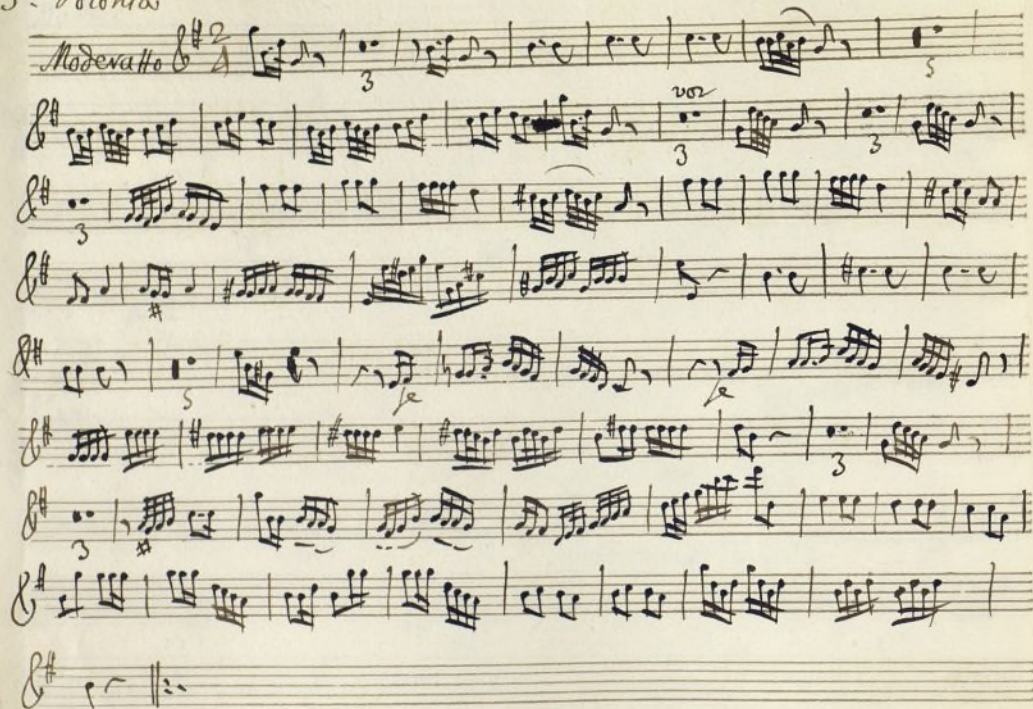 Moderatto 2 4
3 5
voz
3 3
3
5
3
3